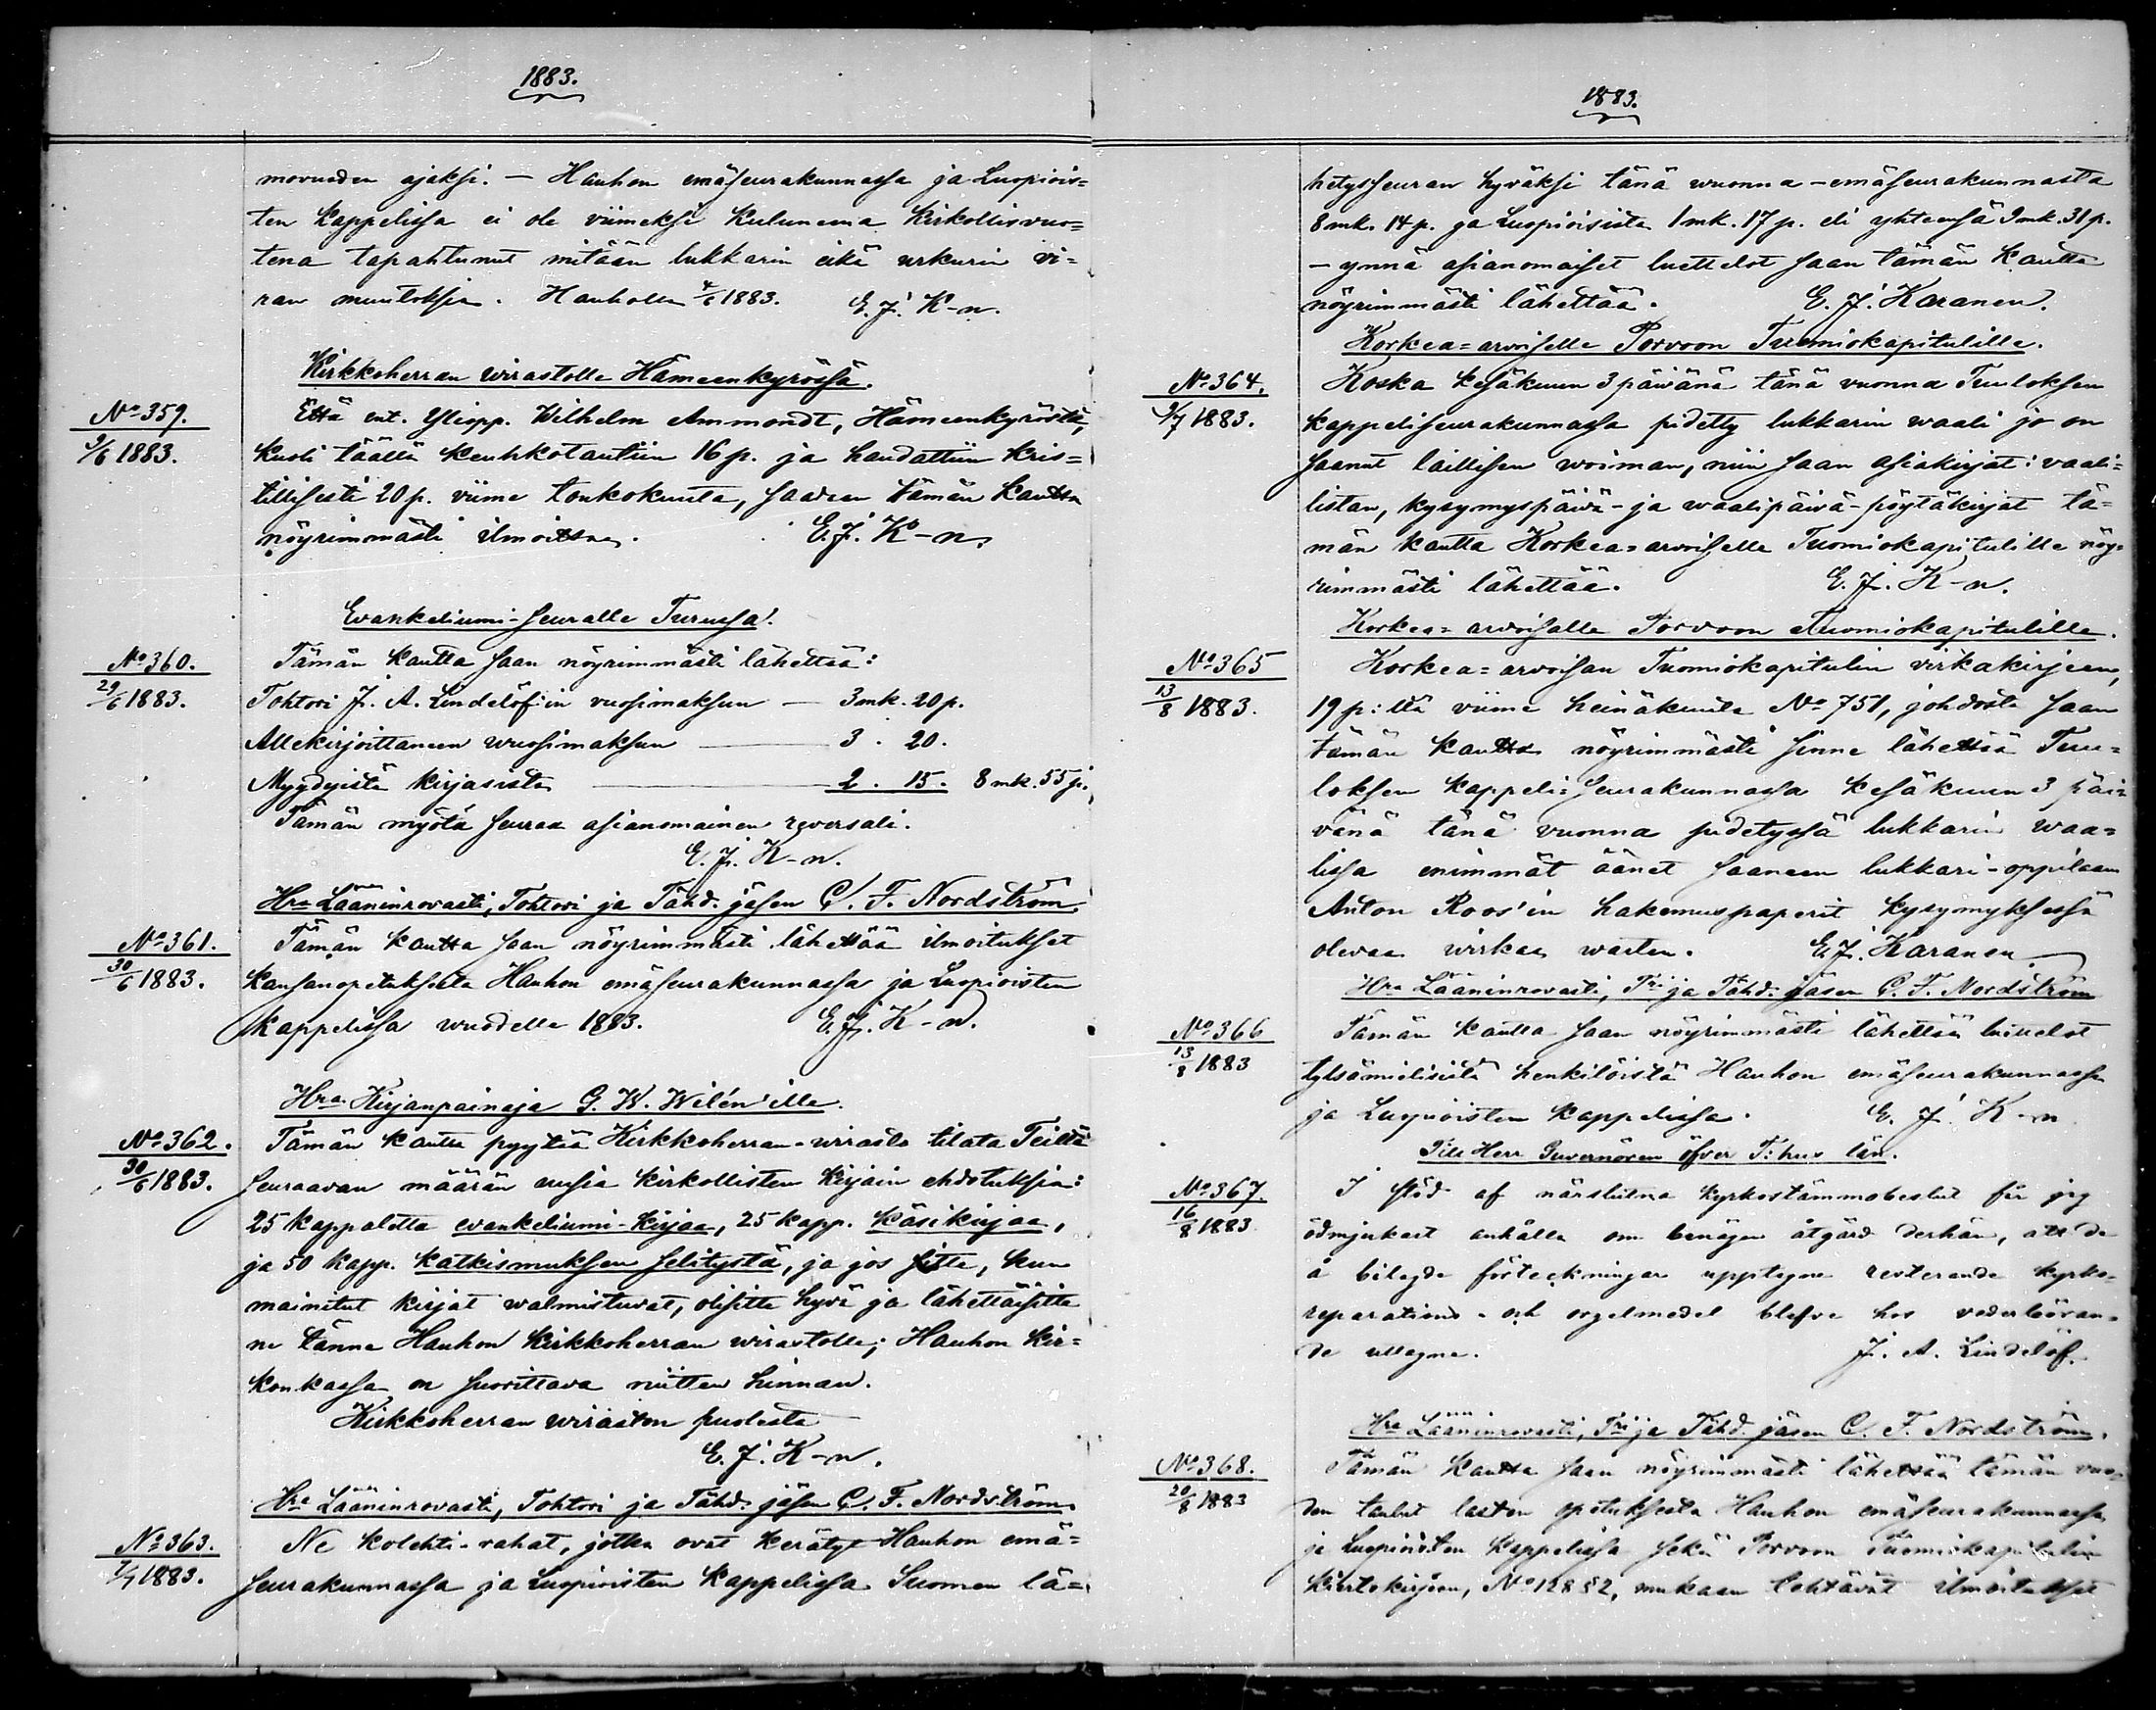 1883.
movuoden ajaksi. — Hauhon emäseurakunnassa ja Luopiois=
ten kappelissa ei ole viimeksi kuluneena kirkollisvuo=
tena tapahtunut mitään lukkarin eikä urkurin vi=
ran muutoksia. Hauholla 4/6 1883. E. J. K-n.
Kirkkoherran wirastolle Hämeenkyrössä.
No 359.
9/6 1883.
Että ent. Yliopp. Wilhelm Ammondt, Hämeenkyröstä,
kuoli täällä keuhkotautiin 16 p. ja haudattiin kris=
tillisesti 20 p. viime toukokuuta, saadaan tämän kautta
nöyrimmästi ilmoittaa. E. J. K-n.
Evankeliumi-seuralle Turussa.
No 360.
29/6 1883.
Tämän kautta saan nöyrimmästi lähettää:
Tohtori J. A. Lindelöf:in vuosimaksun — 3 mk. 20 p.
Allekirjoittaneen wuosimaksun — 3. 20.
Myydyistä kirjasista — 2. 15. 8 mk. 55 p.
Tämän myötä seuraa asianomainen reversali.
E. J. K-n.
Hra Lääninrovasti, Tohtori ja Tähd. jäsen C. F. Nordström.
No 361.
30/6 1883.
Tämän kautta saan nöyrimmästi lähettää ilmoitukset
kansanopetuksesta Hauhon emäseurakunnassa ja Luopioisten
kappelissa wuodelle 1883. E. J. K-n.
Hra Kirjanpainaja G. W. Wilén'ille.
No 362.
30/6 1883.
Tämän kautta pyytää Kirkkoherran-wirasto tilata Teiltä
seuraavan määrän uusia kirkollisten kirjain ehdotuksia:
25 kappaletta evankeliumi-kirjaa, 25 kapp. käsikirjaa,
ja 50 kapp. katkismuksen selitystä, ja jos sitte, kun
mainitut kirjat walmistuvat, olisitte hyvä ja lähettäisitte
ne tänne Hauhon kirkkoherran wirastolle; Hauhon kir=
konkassa on suorittava niitten hinnan.
Kirkkoherran wiraston puolesta
E. J. K-n.
Hra Lääninrovasti, Tohtori ja Tähd. jäsen C. F. Nordström.
No 363.
7/7 1883.
Ne kolehti-rahat, jotka ovat kerätyt Hauhon emä=
seurakunnassa ja Luopioisten kappelissa Suomen lä=
1883.
hetysseuran hyväksi tänä wuonna — emäseurakunnasta
8 mk. 14 p. ja Luopioisista 1 mk. 17 p. eli yhteensä 9 mk. 31 p.
— ynnä asianomaiset luettelot saan tämän kautta
nöyrimmästi lähettää. E. J. Karanen.
Korkea=arvoiselle Porvoon Tuomiokapitulille.
No 364.
9/7 1883.
Koska kesäkuun 3 päivänä tänä vuonna Tuuloksen
kappeliseurakunnassa pidetty lukkarin waali jo on
saanut laillisen woiman, niin saan asiakirjat: vaali=
listan, kysymyspäivä- ja waalipäivä-pöytäkirjat tä=
män kautta Korkea=arvoiselle Tuomiokapitulille nöy=
rimmästi lähettää. E. J. K-n.
Korkea=arvoisalle Porvoon Tuomiokapitulille.
No 365
13/8 1883.
Korkea=arvoisan Tuomiokapitulin virkakirjeen,
19 p:ltä viime heinäkuuta No 751, johdosta saan
tämän kautta nöyrimmästi sinne lähettää Tuu=
loksen kappeli=seurakunnassa kesäkuun 3 päi=
vänä tänä vuonna pidetyssä lukkarin waa=
lissa enimmät äänet saaneen lukkari-oppilaan
Anton Roos'in hakemuspaperit kysymyksessä
olevaa wirkaa warten. E. J. Karanen
Hra Lääninrovasti, Tri ja Tähd. jäsen C. F. Nordström
No 366
13/8 1883
Tämän kautta saan nöyrimmästi lähettää luettelot
tylsämielisistä henkilöistä Hauhon emäseurakunnassa
ja Luopioisten kappelissa. E. J. K-n
Till Herr Guvernören öfver T:hus län.
No 367.
16/8 1883.
I stöd af närslutna kyrkostämmobeslut får jag
ödmjukast anhålla om benägen åtgärd derhän, att de
å bilagda förteckningar upptagna resterande kyrko=
reparations- och orgelmedel blefve hos vederböran=
de uttagna. J. A. Lindelöf.
Hra Lääninrovasti, Tri ja Tähd. jäsen C. F. Nordström.
No 368.
20/8 1883
Tämän kautta saan nöyrimmästi lähettää tämän vuo=
den taulut lasten opetuksesta Hauhon emäseurakunnassa
ja Luopioisten kappelissa sekä Porvoon Tuomiokapitulin
kiertokirjeen, No 128 § 2, mukaan tehtävät ilmoitukset